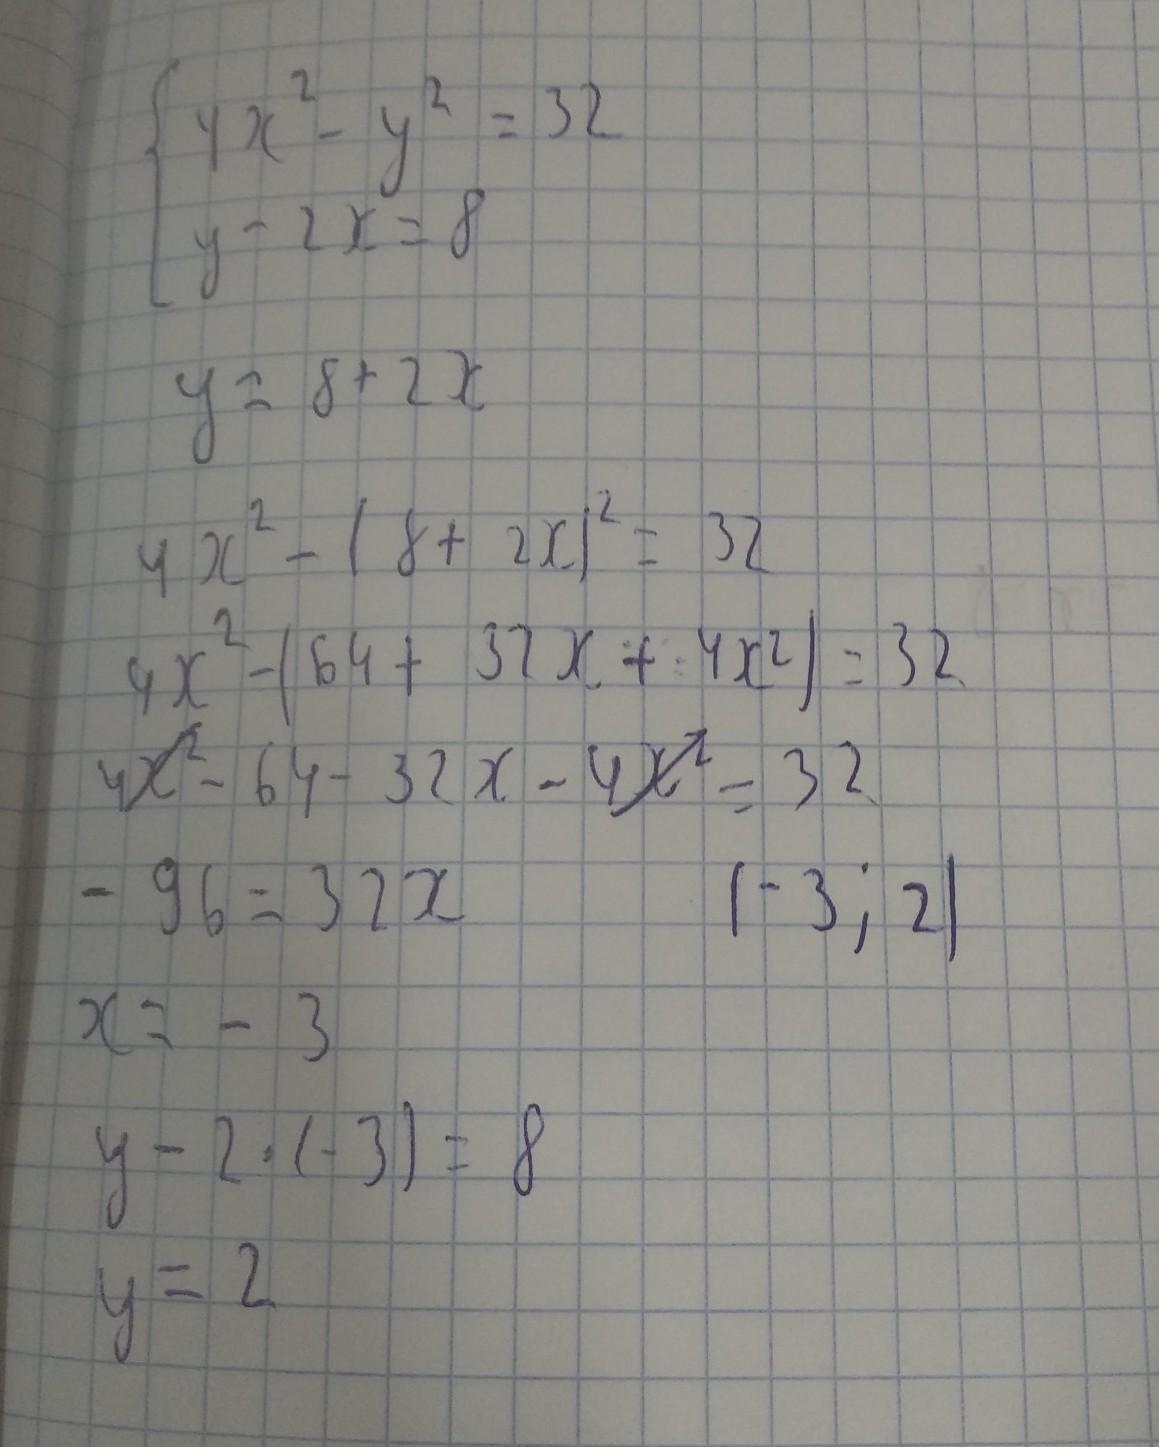 { 4x² - y² = 32
y - 2x = 8
y = 8 + 2x
4x² - (8 + 2x)² = 32
4x² - (64 + 32x + 4x²) = 32
4x² - 64 - 32x - 4x² = 32
- 96 = 32x (-3; 2)
x = - 3
y - 2·(-3) = 8
y = 2